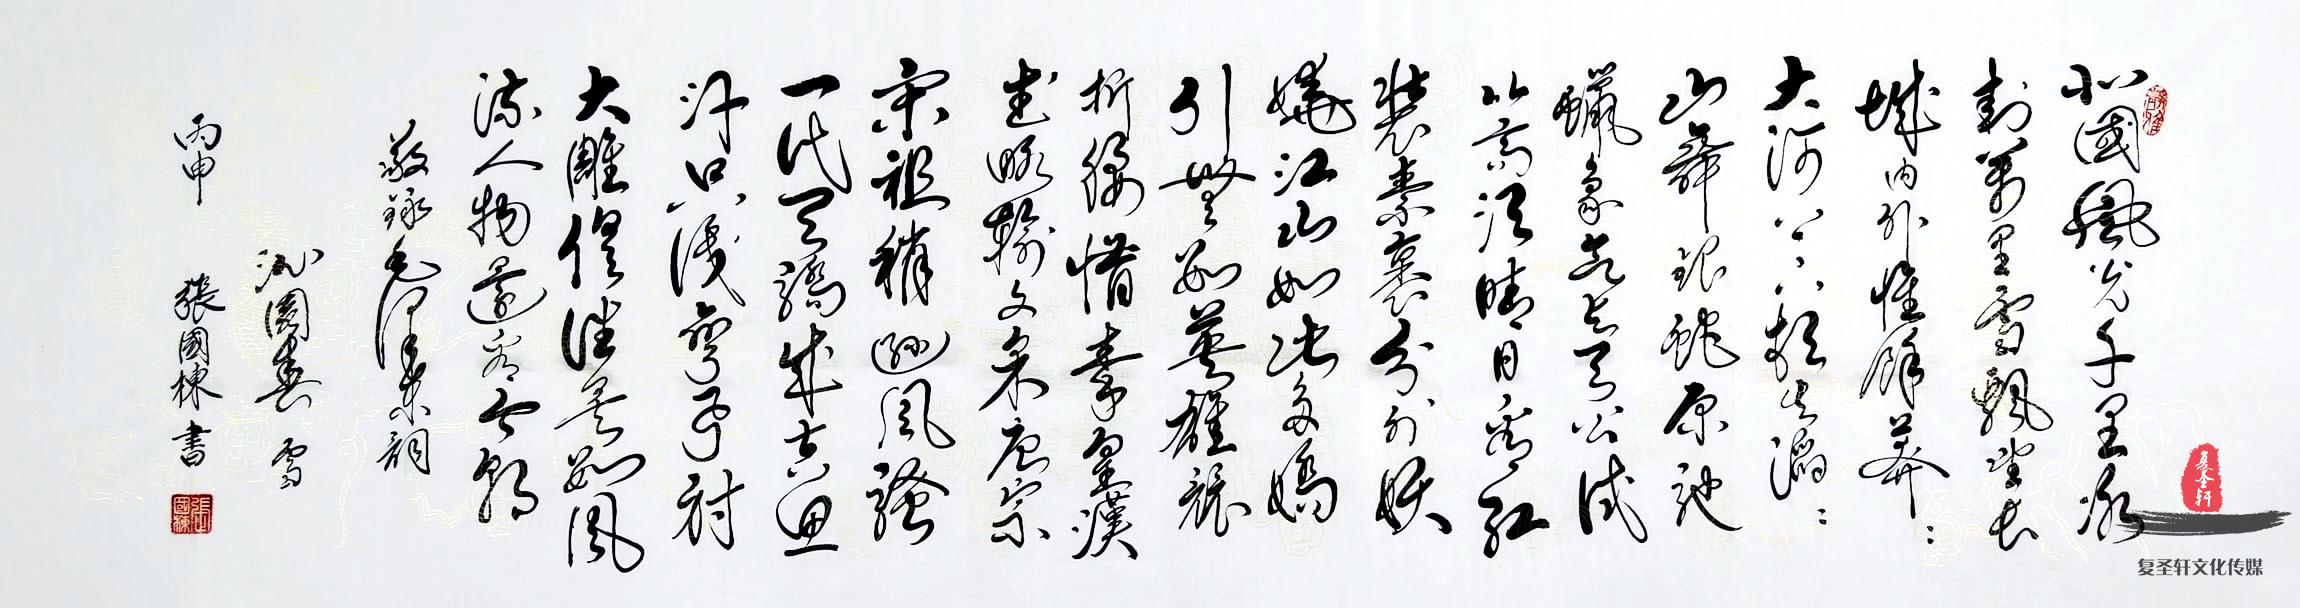 北國風光千里冰
封萬里雪飄望長
城内外惟餘莽：
大河上下頓失滔：
山舞銀蛇原馳
蠟象欲與天公試
比高須晴日看紅
裝素裹分外妖
嬈江山如此多嬌
引無數英雄競
折腰惜秦皇漢
武略輸文采唐宗
宋祖稍遜風騷
一代天驕成吉思
汗只識彎弓射
大雕俱往矣數風
流人物還看今朝
敬錄毛澤東詞
沁園春 雪
丙申 張國棟書
張國棟
复圣轩
复圣轩文化传媒